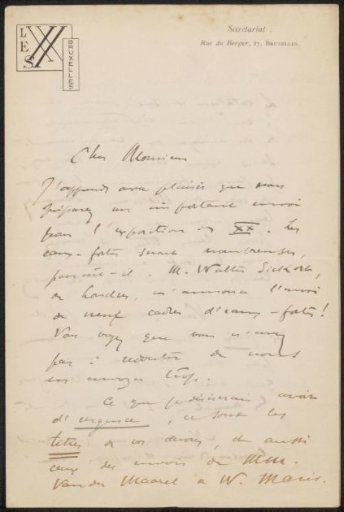 LES XX
BRUXELLES
Secrétariat :
Rue du Berger, 27, BRUXELLES.
Cher Monsieur
J'apprends avec plaisir que vous
préparez un important envoi
pour l'exposition des XX. Les
eaux-fortes seront nombreuses,
paraît-il. M. Walter Sickert,
de Londres, m'annonce l'envoi
de neuf cadres d'eaux-fortes !
Vous voyez que vous n'avez
pas à redouter de nous
en envoyer trop.
Ce que je désirerais avoir
d'urgence, ce sont les
titres de vos œuvres, et aussi
ceux des envois de MM.
Van der Maarel et W. Maris.